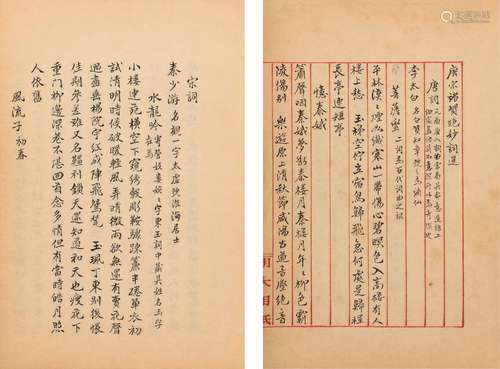 唐宋諸賢絕妙詞選
唐詞
李太白 名白賀知章號之為謫仙
菩薩蠻 二詞為百代詞曲之祖
平林漠〻煙如織寒山一帶傷心碧暝色入高樓有人
樓上愁 玉梯空佇立宿鳥歸飛急何處是歸程
長亭連短亭
憶秦娥
簫聲咽秦娥夢斷秦樓月年〻柳色霸
陵傷別 樂遊原上清秋節咸陽古道音塵絕音
宋詞
秦少游 名觀一字太虛號淮海居士
水龍吟 寄營妓婁婉〻字東玉詞中藏其姓名與字在焉
小樓連苑橫空下窺繡轂雕鞍驟疎簾半捲單衣初
試清明時候破暖輕風弄晴微雨欲無還有賣花聲
過盡垂楊院宇紅成陣飛鴛甃 玉珮丁東別後悵
佳期參差難又名韁利鎖天還知道和天也瘦花下
重門柳邊深巷不堪回首念多情但有當時皓月照
人依舊
風流子 初春